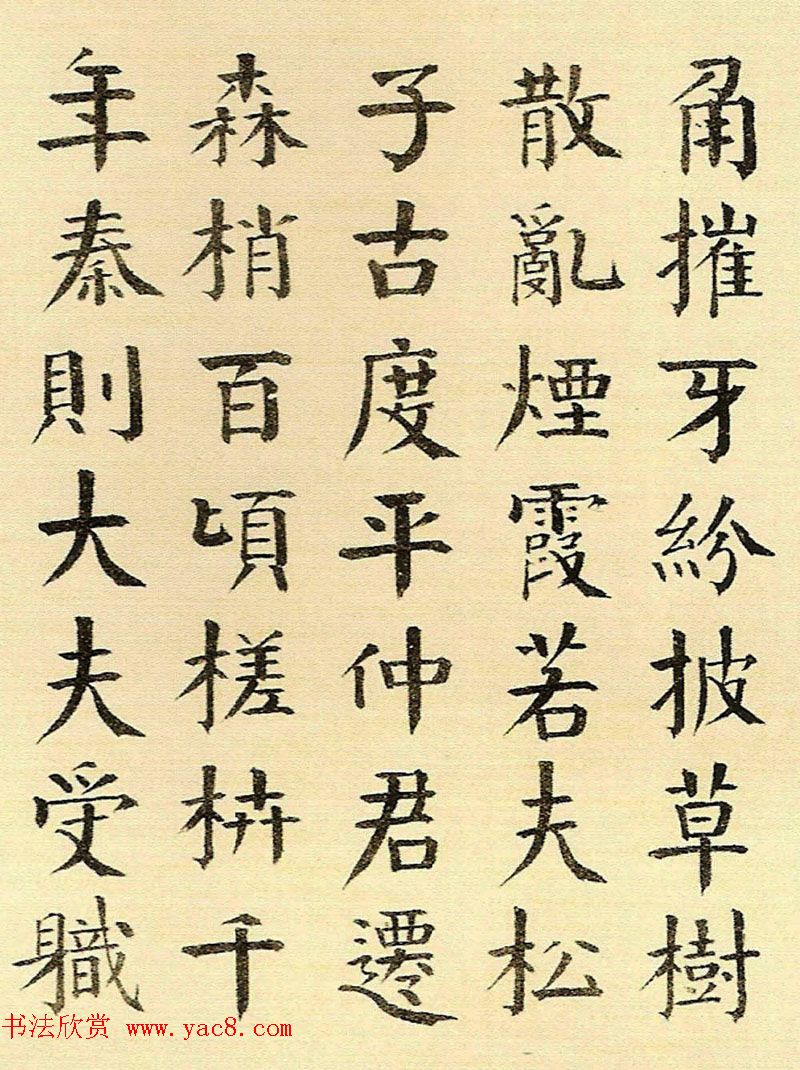 角摧牙紛披草樹
散亂煙霞若夫松
子古度平仲君遷
森梢百頃槎枿千
年秦則大夫受職
书法欣赏 www.yac8.com